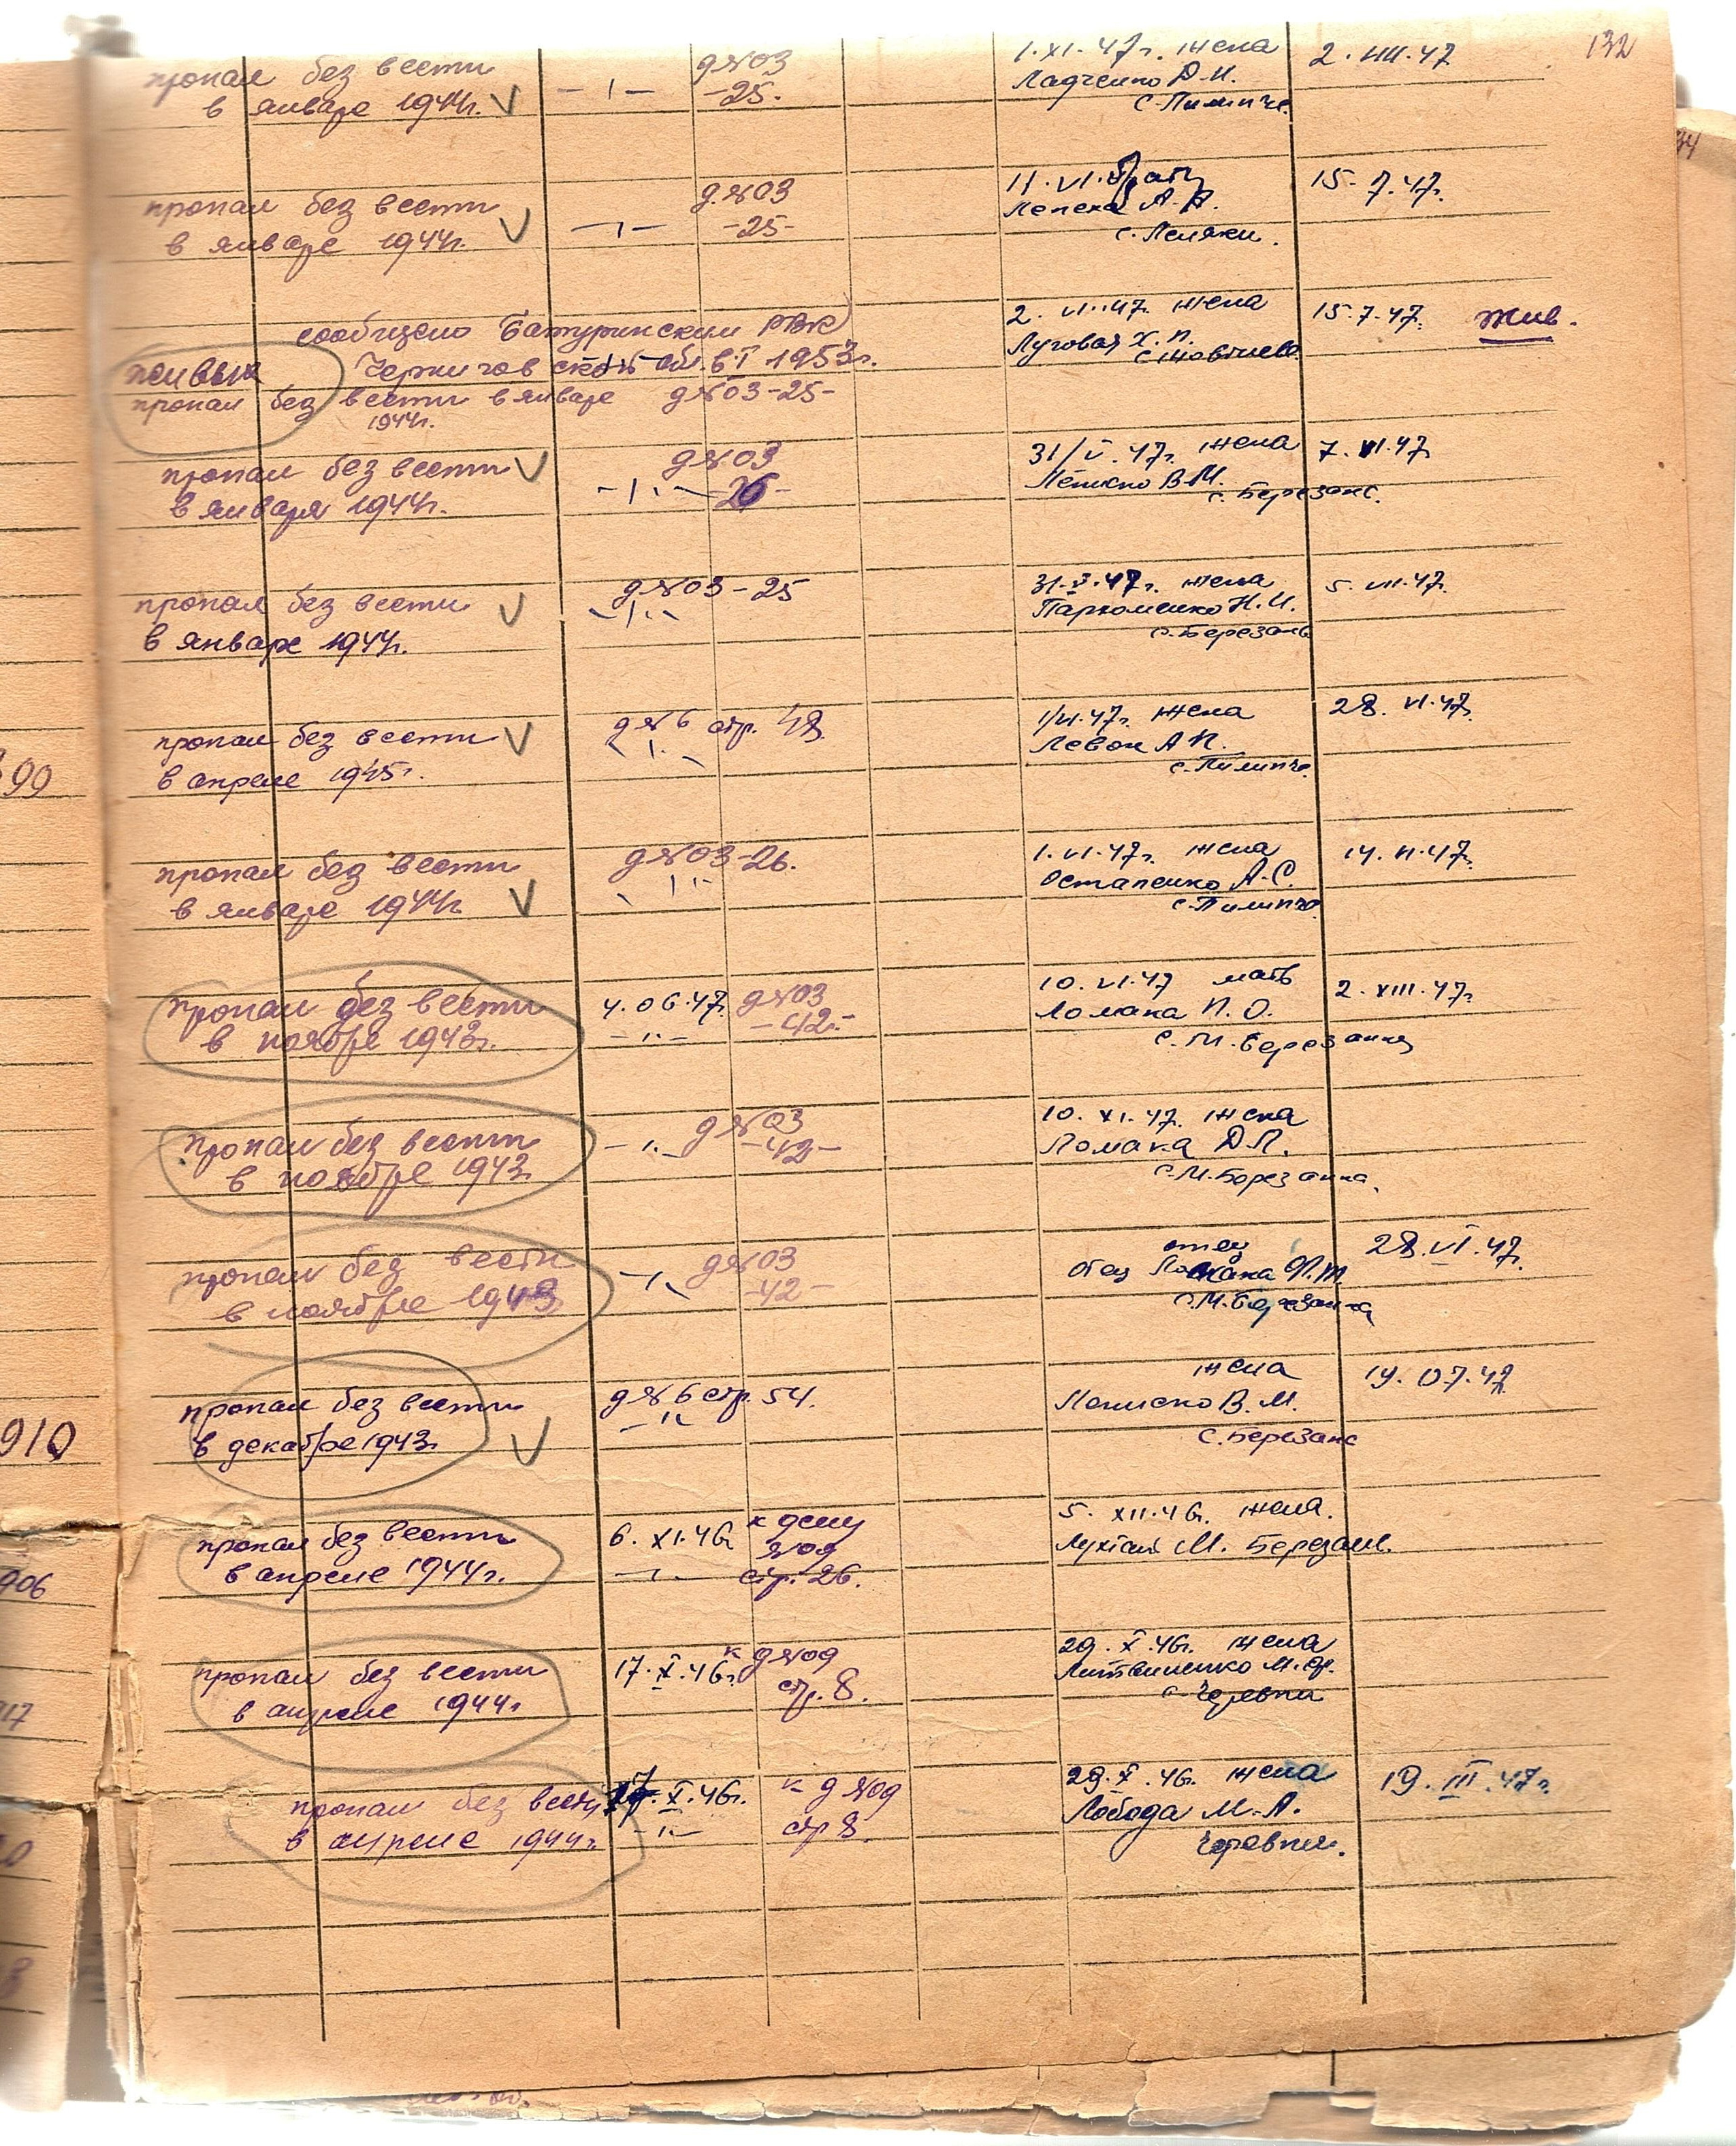 132
пропал без вести
в январе 1944г. V
д №03
-25.
1.XI.47г. жена
Ладченко Д.И.
с. Пилипче.
2.VIII.47
пропал без вести
в январе 1944г. V
д.№03
-25-
11.VI. брат
Лепеха А.А.
с. Леляки.
15.7.47г.
сообщено Батуринским РВК
живых Черниговской обл. в I 1953г.
пропал без вести в январе д №03-25-
1944г.
2.VI.47г. жена
Луговая Х.П.
15.7.47г. жив.
пропал без вести V
в января 1944г.
д №03
26-
31/V.47г. жена
В.М.
с. Березань.
7.VI.47
пропал без вести V
в январе 1944г.
д №03-25
31.V.47г. жена
Пархоменко Н.И.
с. Березань
5.VII.47г.
90
пропал без вести V
в апреле 1945г.
д №6 стр. 48
1/VI.47г. жена
Левон А.П.
с. Пилипче.
28.VI.47г.
пропал без вести
в январе 1944г. V
д №03-26.
1.VI.47г. жена
Остапенко А.С.
с. Пилипче
14.VI.47г.
пропал без вести
в ноябре 1943г.
4.06.47г. д №03
-42-
10.VI.47 мать
Ломака П.О.
с. М. Березанка
2.XIII.47г.
пропал без вести
в ноябре 1943
д №03
-42-
10.XI.47г. жена
Ломака Д.П.
с. М. Березанка.
пропал без вести
в ноябре 1943
д №03
-42-
отец
отец Ломака
с. М. Березанка
28.VI.47г.
910
пропал без вести
в декабре 1943г. V
д №6 стр. 54.
жена
В.М.
с. Березань
19.07.47
906
пропал без вести
в апреле 1944г.
6.XI.46 к делу
№09
стр. 26.
5.XII.46г. жена.
Лухтай М. Березань.
пропал без вести
в апреле 1944г.
17.X.46г. к д №09
стр. 8.
29.X.46г. жена
Литвиненко М.Ф.
с. Черевки
пропал без вести
в апреле 1944г.
17.X.46г. к д №09
стр 8.
29.X.46г. жена
Лобода М.А.
Черевки.
19.III.47г.